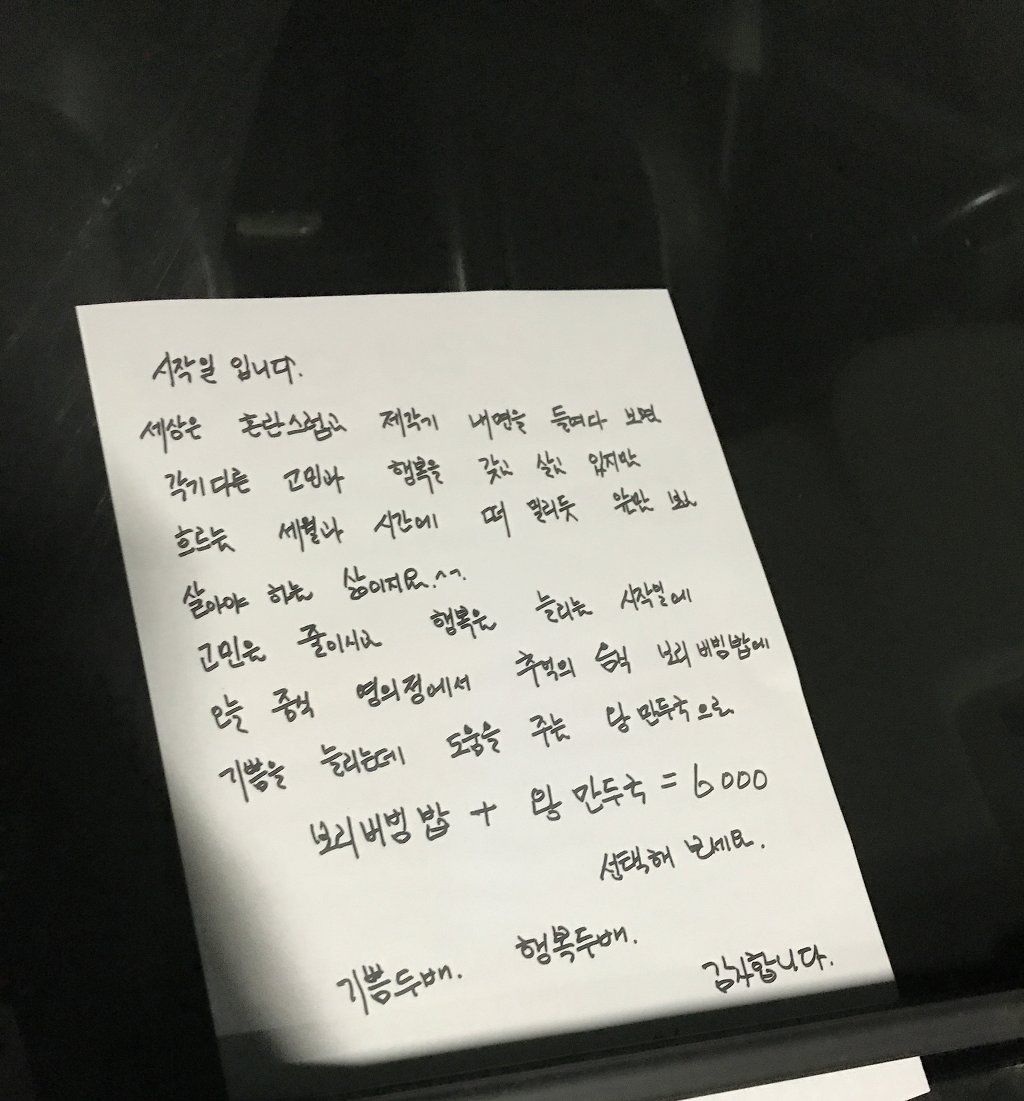 시작일 입니다.
세상은 혼란스럽고 제각기 내면을 들여다 보면
각기다른 고민과 행복을 갖고 살고 있지만
흐르는 세월과 시간에 떠 밀리듯 앞만 보고
살아야 하는 삶이지요.^^.
고민은 줄이시고 행복은 늘리는 시작일에
오늘 중식 영의정에서 추억의 음식 보리비빔밥에
기쁨을 늘리는데 도움을 주는 왕만두국으로
보리비빔밥 + 왕만두국 = 6000
선택해 보세요.
기쁨두배. 행복두배.
감사합니다.